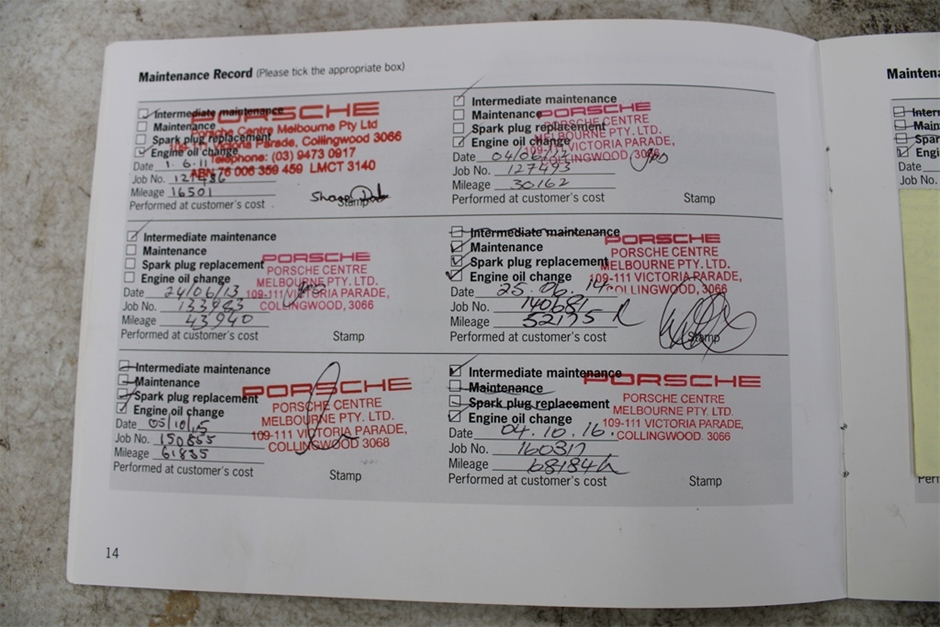 Maintenance Record (Please tick the appropriate box)
Intermediate maintenance
Maintenance
Spark plug replacement
Engine oil change
Date 1.6.11
Job No.
Mileage 16501
Performed at customer's cost
Stamp
PORSCHE
Porsche Centre Melbourne Pty Ltd
Victoria Parade, Collingwood 3066
Telephone: (03) 9473 0917
ABN 76 006 359 459 LMCT 3140
Intermediate maintenance
Maintenance
Spark plug replacement
Engine oil change
Date
Job No. 127493
Mileage 30162
Performed at customer's cost
Stamp
PORSCHE
PORSCHE CENTRE
MELBOURNE PTY. LTD.
109-111 VICTORIA PARADE,
COLLINGWOOD, 3066
Intermediate maintenance
Maintenance
Spark plug replacement
Engine oil change
Date 24/06/13
Job No. 133983
Mileage 43940
Performed at customer's cost
Stamp
PORSCHE
PORSCHE CENTRE
MELBOURNE PTY. LTD.
109-111 VICTORIA PARADE,
COLLINGWOOD, 3066
Intermediate maintenance
Maintenance
Spark plug replacement
Engine oil change
Date 25.06.14.
Job No. 140681
Mileage 52175
Performed at customer's cost
Stamp
PORSCHE
PORSCHE CENTRE
MELBOURNE PTY. LTD.
109-111 VICTORIA PARADE,
COLLINGWOOD, 3066
Intermediate maintenance
Maintenance
Spark plug replacement
Engine oil change
Date 05/10/15
Job No. 150855
Mileage 61835
Performed at customer's cost
Stamp
PORSCHE
PORSCHE CENTRE
MELBOURNE PTY. LTD.
109-111 VICTORIA PARADE,
COLLINGWOOD 3068
Intermediate maintenance
Maintenance
Spark plug replacement
Engine oil change
Date 04.10.16.
Job No.
Mileage 68184
Performed at customer's cost
Stamp
PORSCHE
PORSCHE CENTRE
MELBOURNE PTY. LTD.
109-111 VICTORIA PARADE,
COLLINGWOOD. 3066
14
Maintena
Inter
Main
Spar
Engi
Date
Job No.